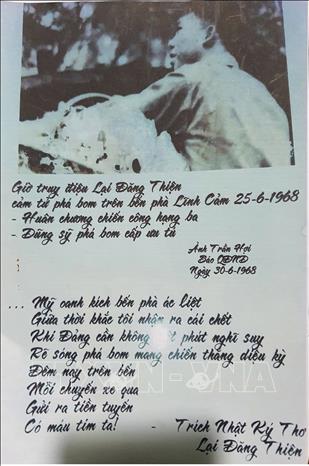 Giờ truy điệu Lại Đăng Thiện
cảm tử phá bom trên bến phà Linh Cảm 25-6-1968
- Huân chương chiến công hạng ba
- Dũng sỹ phá bom cấp ưu tú
Ảnh Trần Hợi
Báo QĐND
Ngày 30-6-1968
... Mỹ oanh kích bến phà ác liệt
Giữa thời khắc tôi nhận ra cái chết
Khi Đảng cần không phút nghĩ suy
Rẽ sóng phá bom mang chiến thắng diệu kỳ
Đêm nay trên bến
Mỗi chuyến xe qua
Gửi ra tiền tuyến
Có máu tim ta! - Trích Nhật Ký Thơ
Lại Đăng Thiện